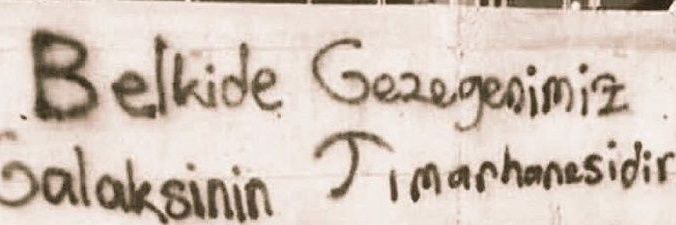 Belkide Gezegenimiz
Galaksinin Tımarhanesidir